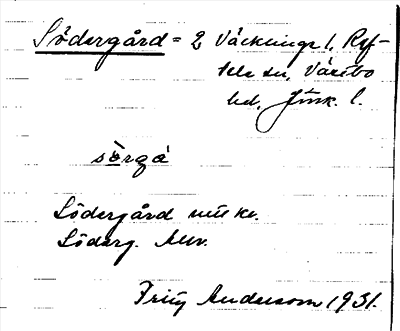 Södergård = 2 Väcklinge l, Ryf-
tele sn, Västbo
hd, Jönk. l.
sòrgá
Södergård
Söderg.
Fritz Andersson 1931.